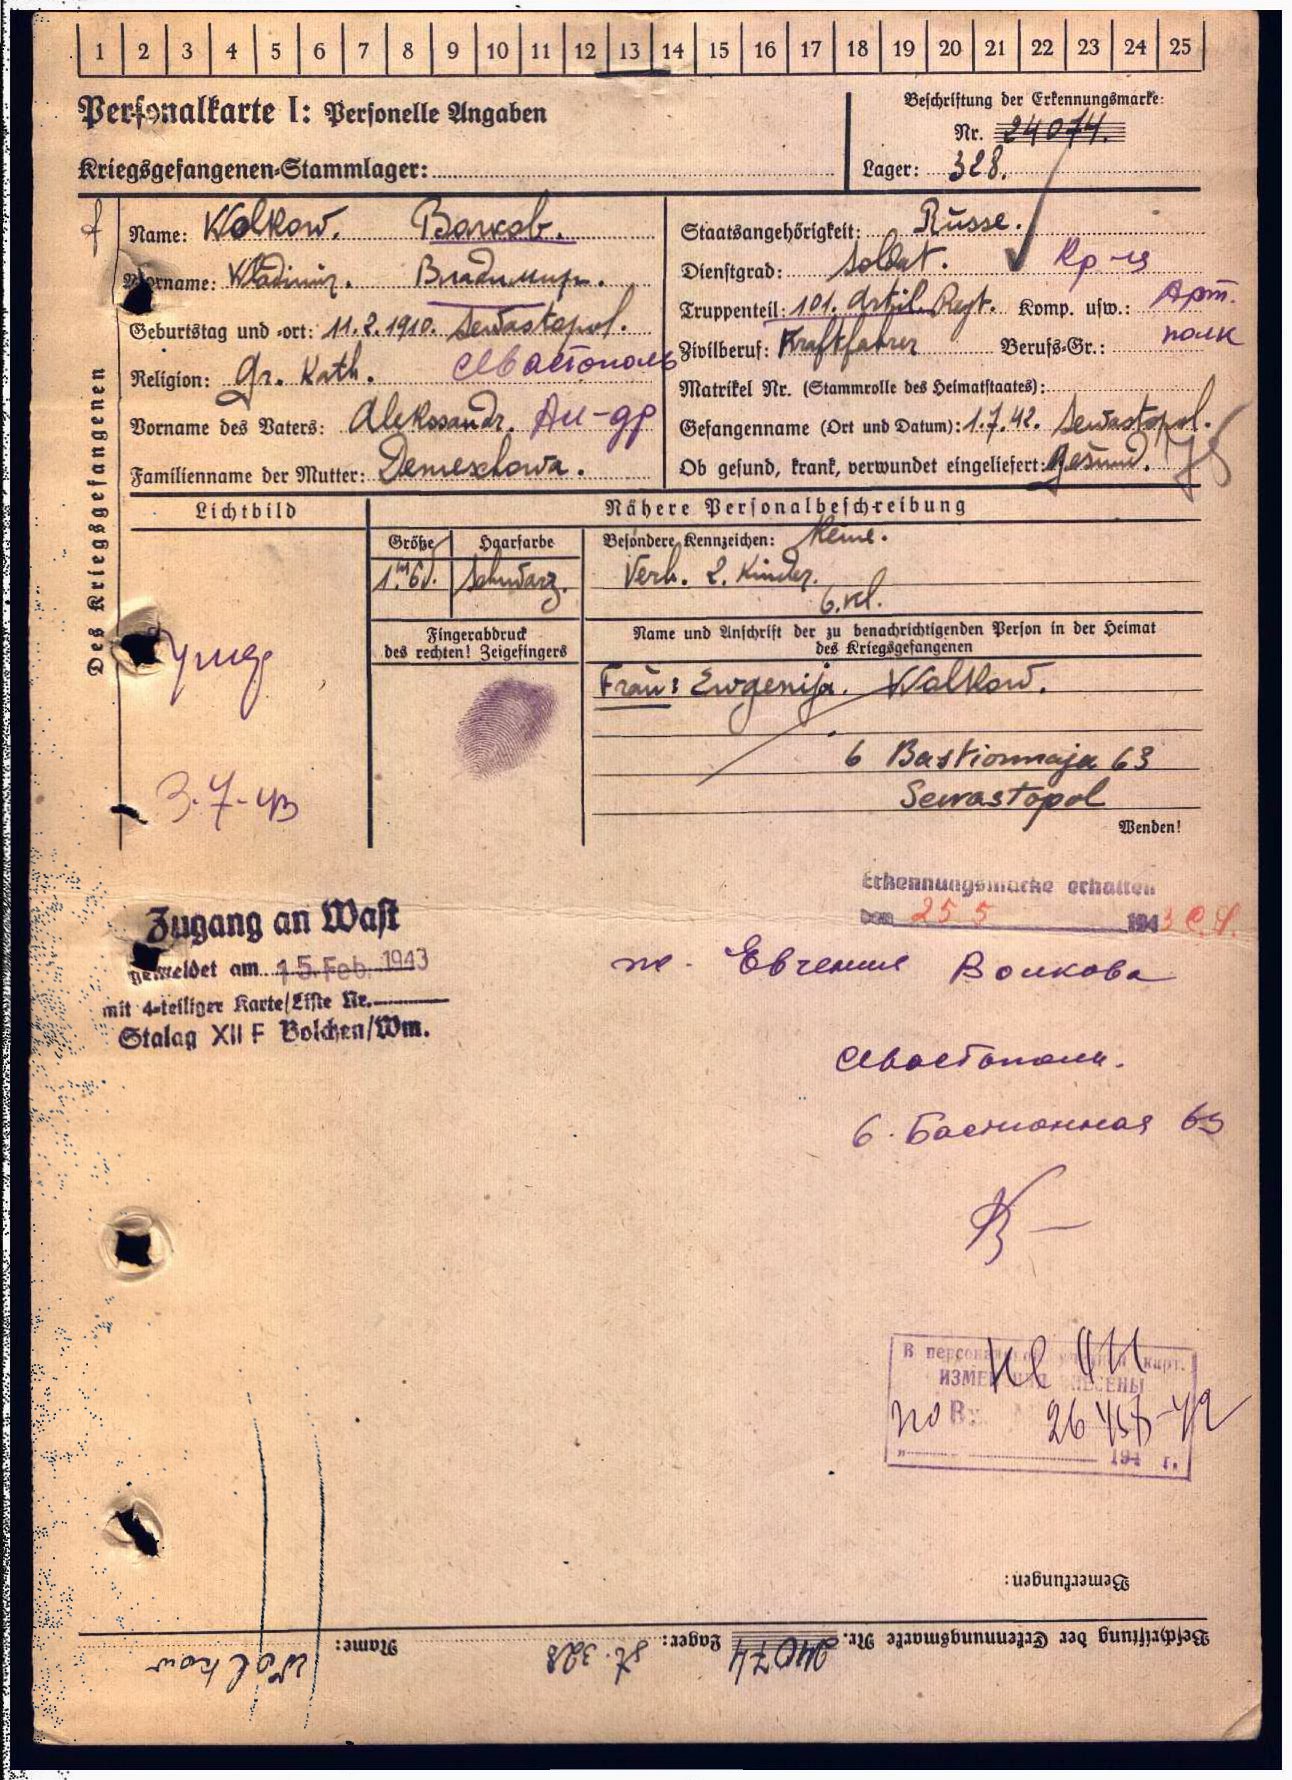 1 2 3 4 5 6 7 8 9 10 11 12 13 14 15 16 17 18 19 20 21 22 23 24 25
Personalkarte I: Personelle Angaben
Kriegsgefangenen-Stammlager:
Beschriftung der Erkennungsmarke:
Nr. 24074.
Lager: 328.
Des Kriegsgefangenen
Name: Wolkow. Волков.
Vorname: Wladimir. Владимир.
Geburtstag und -ort: 11.2.1910. Sewastopol.
Севастополь
Religion: Gr. Kath.
Vorname des Vaters: Alekssandr. Ал-др
Familienname der Mutter: Demeschowa.
Staatsangehörigkeit: Russe.
Dienstgrad: Soldat. Кр-ц
Truppenteil: 101. Artil. Regt. Komp. usw.: Арт.
полк
Zivilberuf: Kraftfahrer Berufs-Gr.:
Matrikel Nr. (Stammrolle des Heimatstaates):
Gefangenname (Ort und Datum): 1.7.42. Sewastopol.
Ob gesund, krank, verwundet eingeliefert: Gesund.
Lichtbild
Nähere Personalbeschreibung
Größe Haarfarbe
Schwarz.
Besondere Kennzeichen: Keine.
Verh. 2. Kinder.
6. Kl.
Fingerabdruck
des rechten! Zeigefingers
Name und Anschrift der zu benachrichtigenden Person in der Heimat
des Kriegsgefangenen
Frau: Ewgenija. Wolkow.
6 Bastionnaja 63
Sewastopol
Wenden!
3-7-43
Erkennungsmarke erhalten
den 25 5 1943
Zugang an Wast
gemeldet am 15. Feb. 1943
mit 4-teiliger Karte/Liste Nr.
Stalag XII F Bolchen/Wm.
Евгения Волкова
Севастополь.
6. Бастионная 63
В персональной учетной карт.
ИЗМЕНЕНИЯ ВНЕСЕНЫ
по Вх.
194 г.
Bemerkungen:
Beschriftung der Erkennungsmarke Nr. 24074 Lager: St. 328 Name: Wolkow